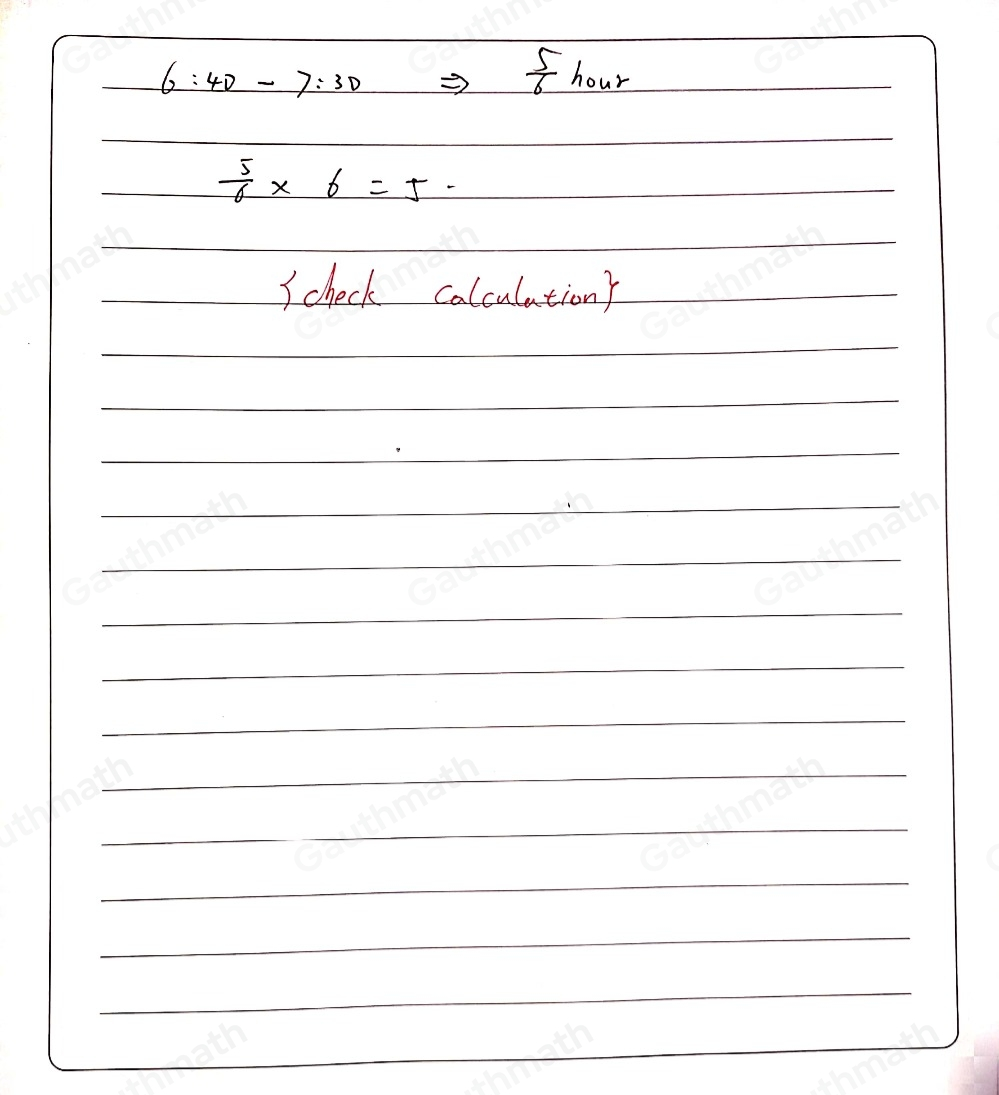 6:40 - 7:30 ⇒ 5/6 hour
5/6 × 6 = 5.
{check calculation}
Gauthmath